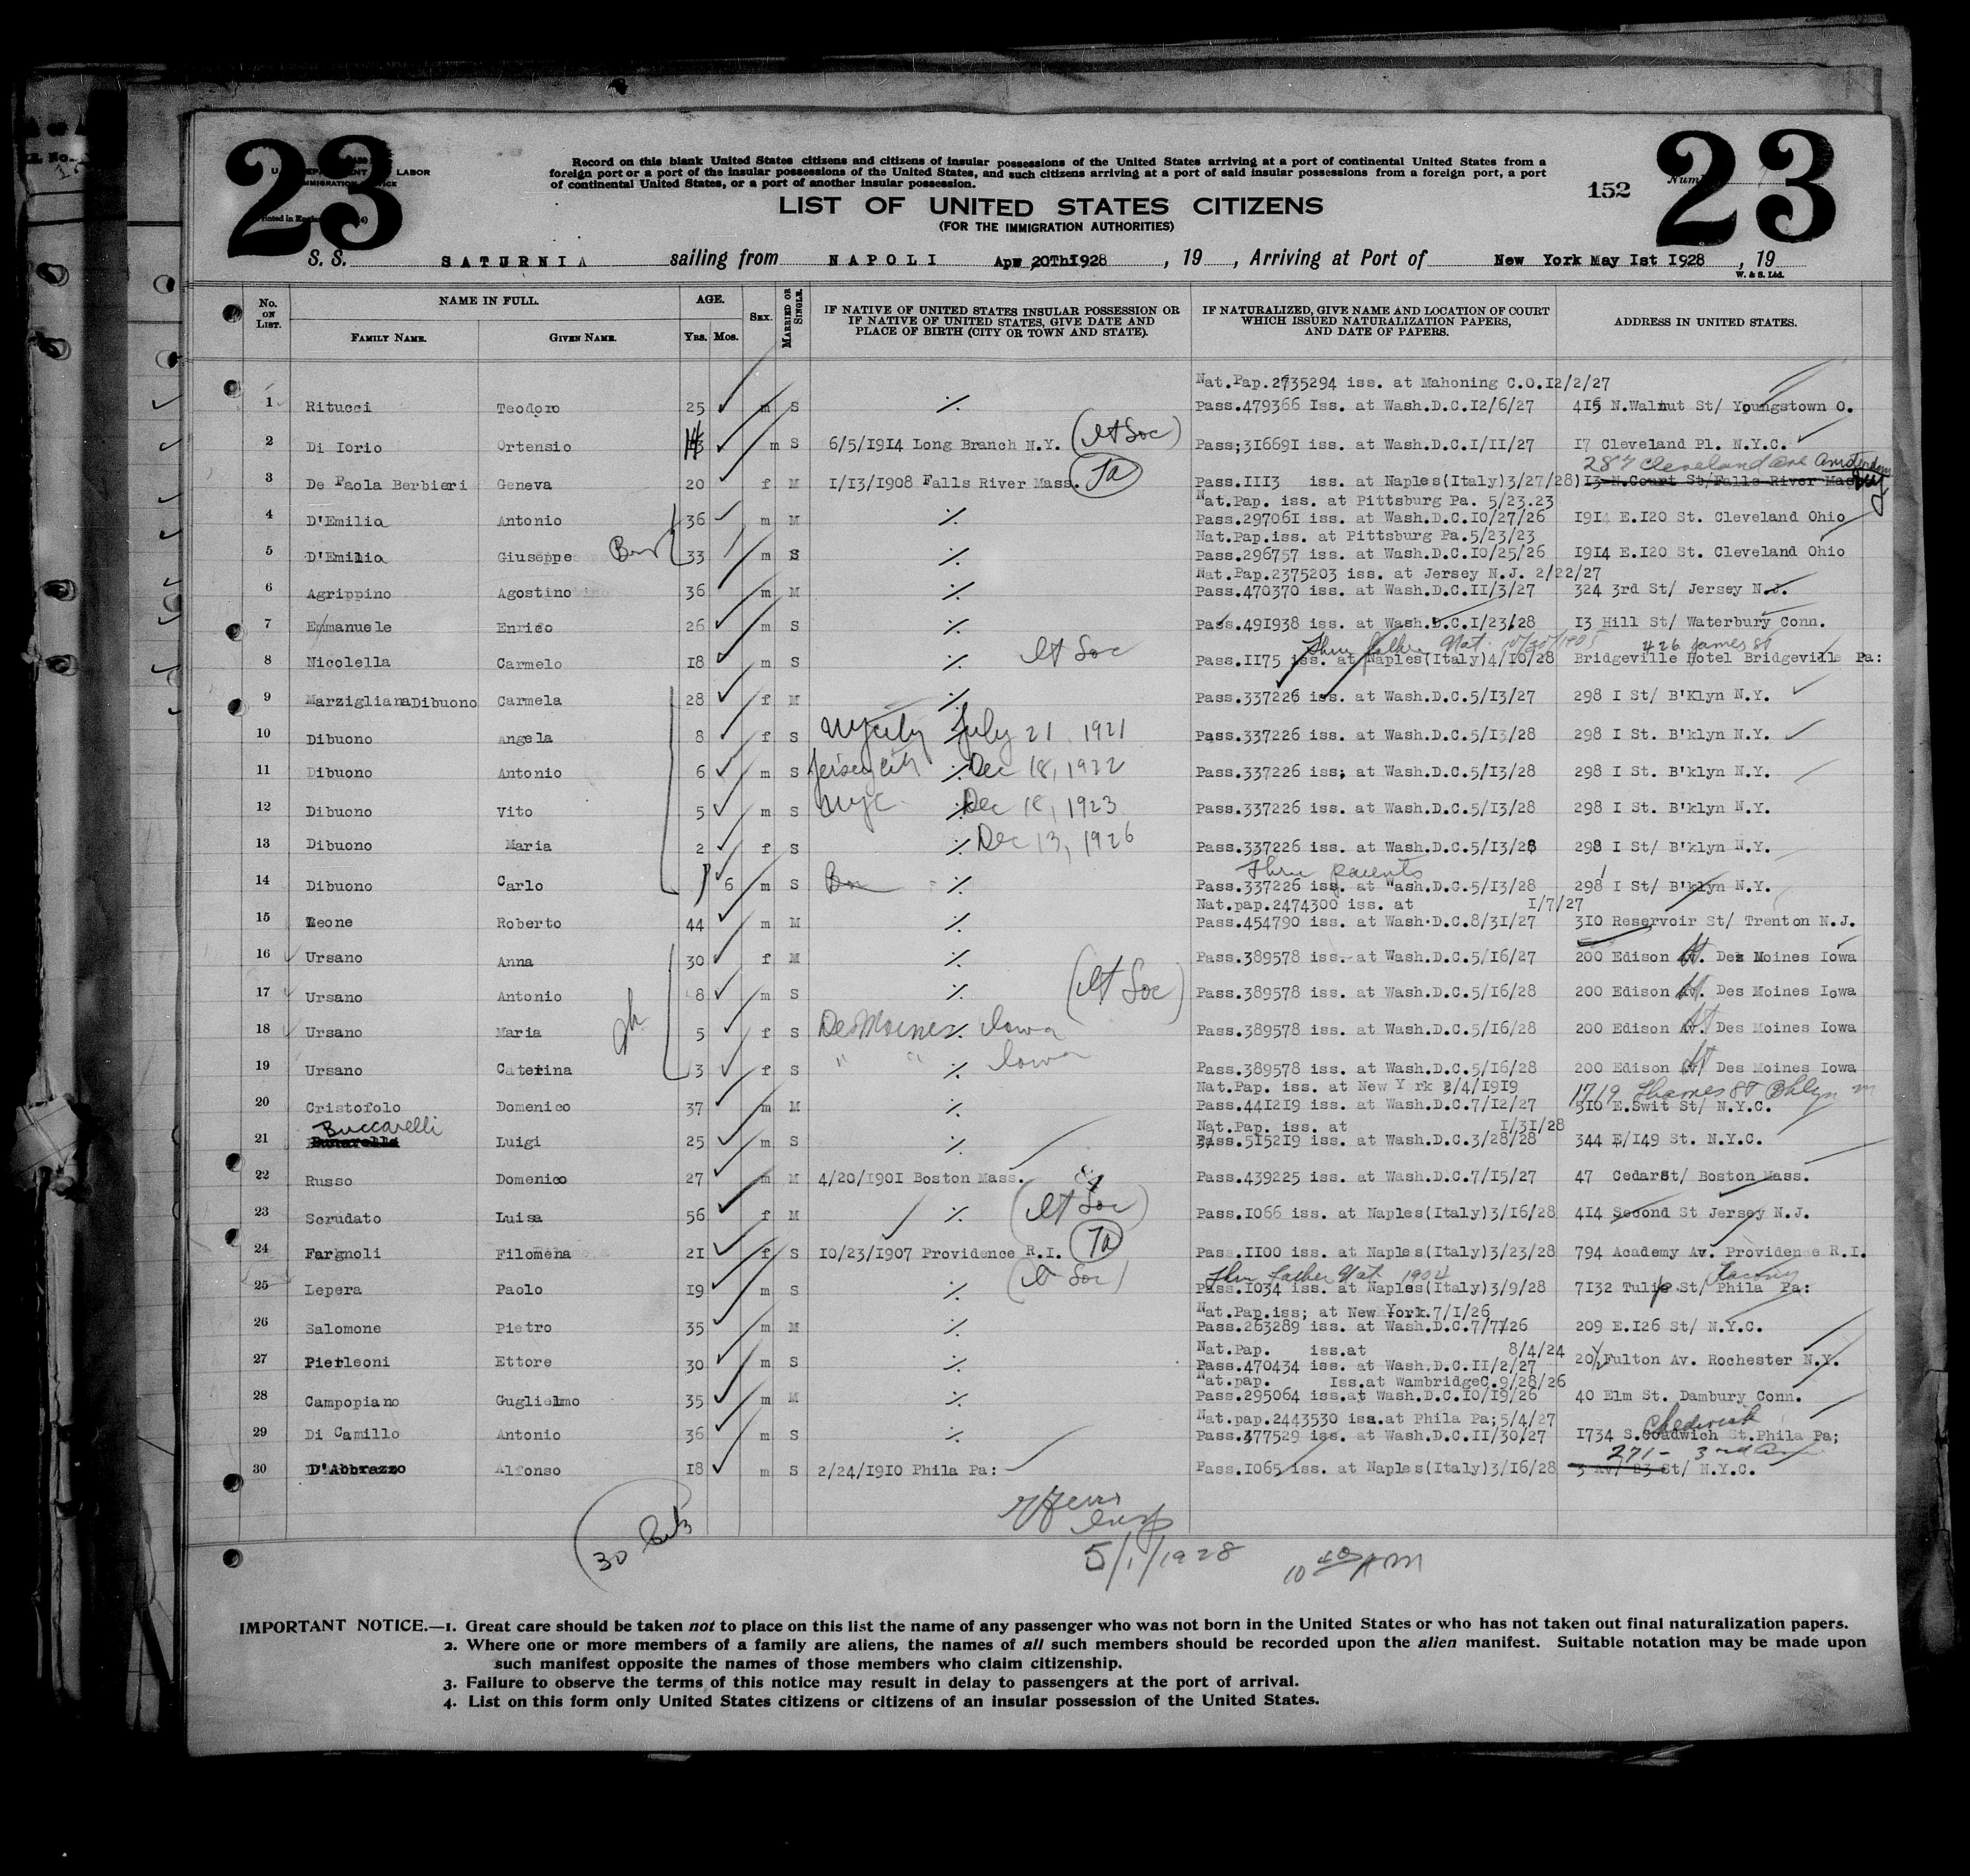 23
23
LABOR
Record on this blank United States citizens and citizens of insular possessions of the United States arriving at a port of continental United States from a
foreign port or a port of the insular possessions of the United States, and such citizens arriving at a port of said insular possessions from a foreign port, a port
of continental United States, or a port of another insular possession.
152
LIST OF UNITED STATES CITIZENS
(FOR THE IMMIGRATION AUTHORITIES)
S. S. SATURNIA sailing from NAPOLI Apr 20Th1928, 19 , Arriving at Port of New York May 1st 1928 , 19
W. & S. Ltd.
No. ON LIST. NAME IN FULL. FAMILY NAME. GIVEN NAME. AGE. Yrs. Mos. SEX. MARRIED OR SINGLE. IF NATIVE OF UNITED STATES INSULAR POSSESSION OR IF NATIVE OF UNITED STATES, GIVE DATE AND PLACE OF BIRTH (CITY OR TOWN AND STATE). IF NATURALIZED, GIVE NAME AND LOCATION OF COURT WHICH ISSUED NATURALIZATION PAPERS, AND DATE OF PAPERS. ADDRESS IN UNITED STATES.
Nat.Pap.2735294 iss. at Mahoning C.O.12/2/27
1 Ritucci Teodoro 25 m S ./. Pass.479366 Iss. at Wash.D.C.12/6/27 415 N.Walnut St/ Youngstown O.
2 Di Iorio Ortensio 14 m S 6/5/1914 Long Branch N.Y. Pass;316691 iss. at Wash.D.C.1/11/27 17 Cleveland Pl. N.Y.C.
287 Cleveland Ave Amsterdam
3 De Paola Berbieri Geneva 20 f M 1/13/1908 Falls River Mass. Pass.1113 iss. at Naples(Italy)3/27/28) 13 N.Court St/Falls River Mas
Nat.Pap. iss. at Pittsburg Pa. 5/23.23
4 D'Emilio Antonio 36 m M ./. Pass.297061 iss. at Wash.D.C.10/27/26 1914 E.120 St. Cleveland Ohio
Nat.Pap.iss. at Pittsburg Pa.5/23/23
5 D'Emilio Giuseppe 33 m S ./. Pass.296757 iss. at Wash.D.C.10/25/26 1914 E.120 St. Cleveland Ohio
Nat.Pap.2375203 iss. at Jersey N.J. 2/22/27
6 Agrippino Agostino 36 m M ./. Pass.470370 iss. at Wash.D.C.11/3/27 324 3rd St/ Jersey N.J.
7 Emmanuele Enrico 26 m S ./. Pass.491938 iss. at Wash.D.C.1/23/28 13 Hill St/ Waterbury Conn.
Thru father Nat. 10/30/1905 426 James St
8 Nicolella Carmelo 18 m S ./. Pass.1175 iss. at Naples(Italy)4/10/28 Bridgeville Hotel Bridgeville Pa:
9 Marzigliana Dibuono Carmela 28 f M ./. Pass.337226 iss. at Wash.D.C.5/13/27 298 I St/ B'Klyn N.Y.
10 Dibuono Angela 8 f S NYCity ./. July 21 1921 Pass.337226 iss. at Wash.D.C.5/13/28 298 I St. B'klyn N.Y.
11 Dibuono Antonio 6 m S Jersey City ./. Dec 18, 1922 Pass.337226 iss; at Wash.D.C.5/13/28 298 I St. B'klyn N.Y.
12 Dibuono Vito 5 m S NYC. ./. Dec 18, 1923 Pass.337226 iss. at Wash.D.C.5/13/28 298 I St. B'klyn N.Y.
13 Dibuono Maria 2 f S ./. Dec 13, 1926 Pass.337226 iss. at Wash.D.C.5/13/28 298 I St/ B'klyn N.Y.
Thru parents
14 Dibuono Carlo 6 m S ./. Pass.337226 iss. at Wash.D.C.5/13/28 298 I St/ B'klyn N.Y.
Nat.pap.2474300 iss. at 1/7/27
15 Leone Roberto 44 m M ./. Pass.454790 iss. at Wash.D.C.8/31/27 310 Reservoir St/ Trenton N.J.
16 Ursano Anna 30 f M ./. Pass.389578 iss. at Wash.D.C.5/16/27 200 Edison St. Des Moines Iowa
17 Ursano Antonio 8 m S ./. Pass.389578 iss. at Wash.D.C.5/16/28 200 Edison St. Des Moines Iowa
18 Ursano Maria 5 f S Des Moines ./. Iowa Pass.389578 iss. at Wash.D.C.5/16/28 200 Edison St. Des Moines Iowa
19 Ursano Caterina 3 f S " " ./. Iowa Pass.389578 iss. at Wash.D.C.5/16/28 200 Edison St Des Moines Iowa
Nat.Pap. iss. at New Y rk 2/4/1919 1719 Thames St Bklyn
20 Cristofolo Domenico 37 m M ./. Pass.441219 iss. at Wash.D.C.7/12/27 510 E.Swit St/ N.Y.C.
Buccarelli Nat.Pap. iss. at 1/31/28
21 Luigi 25 m S ./. Pass.515219 iss. at Wash.D.C.3/28/28 344 E/149 St. N.Y.C.
22 Russo Domenico 27 m M 4/20/1901 Boston Mass. Pass.439225 iss. at Wash.D.C.7/15/27 47 Cedar St/ Boston Mass.
23 Scrudato Luisa 56 f M ./. Pass.1066 iss. at Naples(Italy)3/16/28 414 Second St Jersey N.J.
24 Fargnoli Filomena 21 f S 10/23/1907 Providence R.I. Pass.1100 iss. at Naples(Italy)3/23/28 794 Academy Av. Providence R.I.
Thru father Nat. 1904
25 Lepera Paolo 19 m S ./. Pass.1034 iss. at Naples(Italy)3/9/28 7132 Tulip St/ Phila Pa:
Nat.Pap.iss; at New York.7/1/26
26 Salomone Pietro 35 m M ./. Pass.263289 iss. at Wash.D.C.7/7/26 209 E.126 St/ N.Y.C.
Nat.Pap. iss.at 8/4/24
27 Pierleoni Ettore 30 m S ./. Pass.470434 iss. at Wash.D.C.11/2/27 20 1/2 Fulton Av. Rochester N.Y.
Nat.pap. Iss.at WambridgeC.9/28/26
28 Campopiano Guglielmo 35 m M ./. Pass.295064 iss.at Wash.D.C.10/19/26 40 Elm St. Dambury Conn.
Nat.pap.2443530 iss.at Phila Pa;5/4/27
29 Di Camillo Antonio 36 m S ./. Pass.477529 iss. at Wash.D.C.11/30/27 1734 S. St.Phila Pa;
271- 3rd Av
30 D'Abbrazzo Alfonso 18 m S 2/24/1910 Phila Pa: Pass.1065 iss. at Naples(Italy)3/16/28 3 Av/ 23 St/ N.Y.C.
30
5/1/1928 10 40 AM
IMPORTANT NOTICE.—1. Great care should be taken not to place on this list the name of any passenger who was not born in the United States or who has not taken out final naturalization papers.
2. Where one or more members of a family are aliens, the names of all such members should be recorded upon the alien manifest. Suitable notation may be made upon
such manifest opposite the names of those members who claim citizenship.
3. Failure to observe the terms of this notice may result in delay to passengers at the port of arrival.
4. List on this form only United States citizens or citizens of an insular possession of the United States.